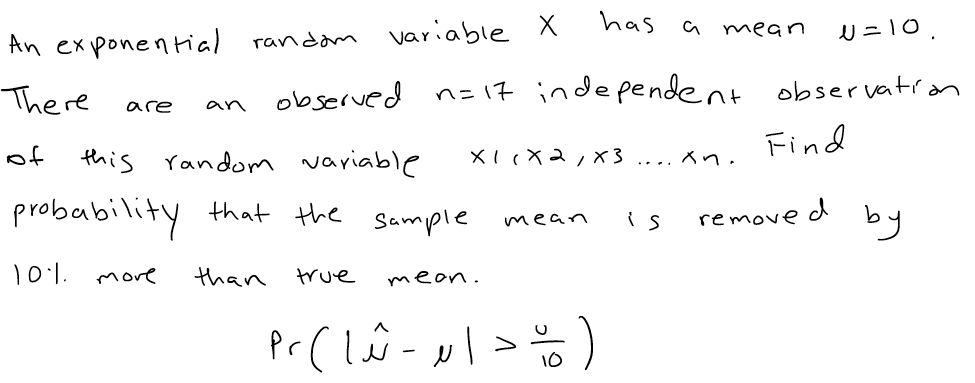 An exponential random variable X has a mean μ=10.
There are an observed n=17 independent observation
of this random variable x1,x2,x3 .... xn. Find
probability that the sample mean is removed by
10% more than true mean.
Pr(|μ̂ - μ| > μ/10)